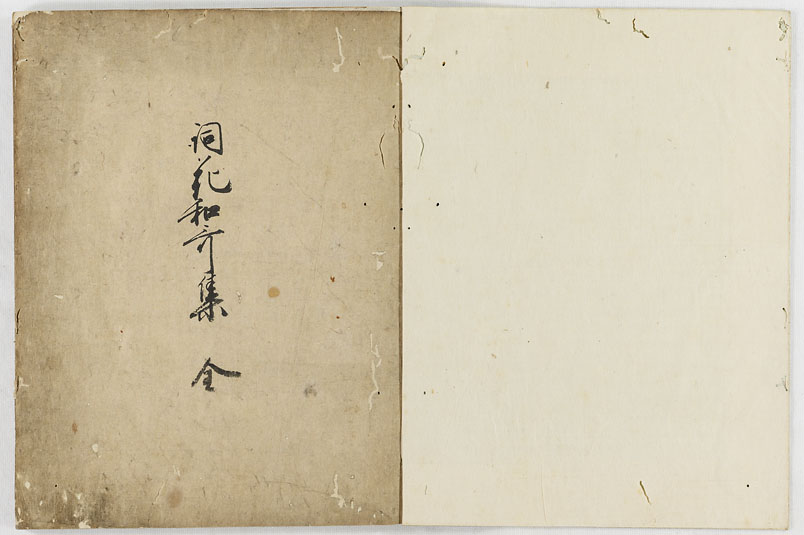 詞花和哥集 全